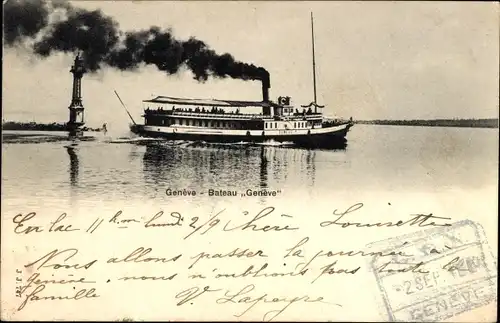 Genève - Bateau „Genève"
En lac 11 h m lundi 2/9 Chère Louisette
Nous allons passer la journée à
Genève nous n'oublions pas toute la
famille
V. Lapeyre
2 SEP
GENÈVE